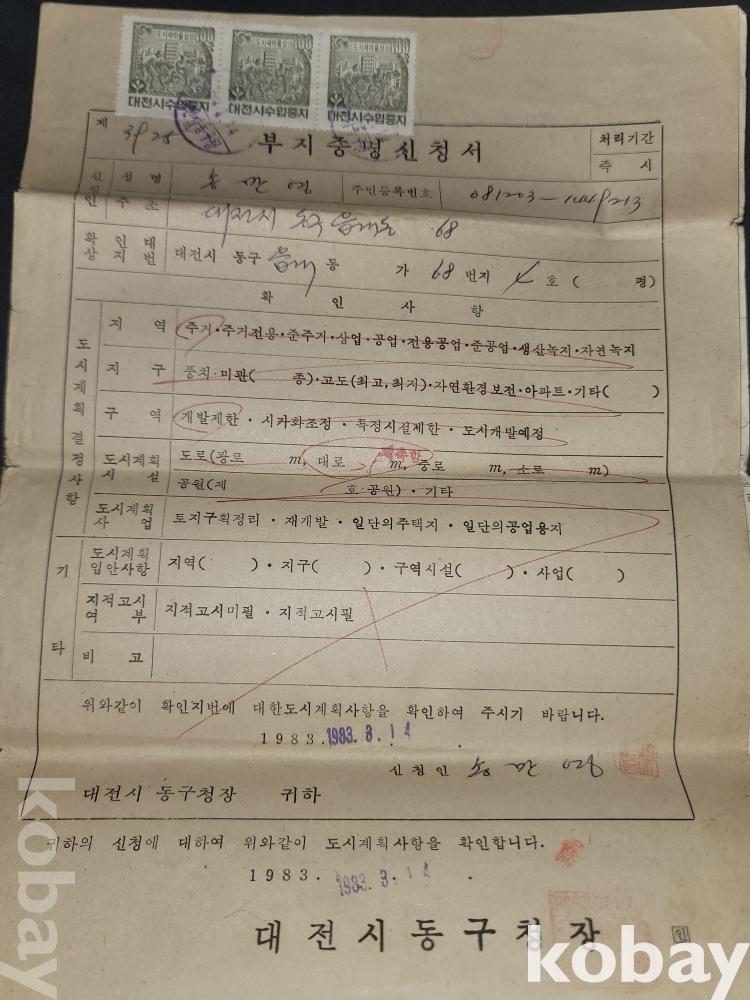 도시새마을상 100 도시새마을상 100 도시새마을상 100
대전시수입증지 대전시수입증지 대전시수입증지
제 3925
부지증명신청서
처리기간
즉 시
신청인
성명 송만영 주민등록번호
주소 대전시 동구 68
확인대상지번 대전시 동구 동 가 68 번지 호 ( 평)
확 인 사 항
도시계획결정사항
지역 주거·주거전용·준주거·상업·공업·전용공업·준공업·생산녹지·자연녹지
지구 풍치·미관( 종)·고도(최고,최저)·자연환경보전·아파트·기타( )
구역 개발제한·시가화조정·특정시설제한·도시개발예정
도시계획시설 도로(광로 m, 대로 m, 중로 m, 소로 m)
저촉함
공원(제 호 공원)·기타
도시계획사업 토지구획정리·재개발·일단의주택지·일단의공업용지
기타
도시계획입안사항 지역( )·지구( )·구역시설( )·사업( )
지적고시여부 지적고시미필·지적고시필
비고
위와같이 확인지번에 대한도시계획사항을 확인하여 주시기 바랍니다.
1983. 1983. 3. 14 .
신청인 송만영
대전시 동구청장 귀하
귀하의 신청에 대하여 위와같이 도시계획사항을 확인합니다.
1983. 1983. 3. 14 .
대전시동구청장 인
kobay
kobay